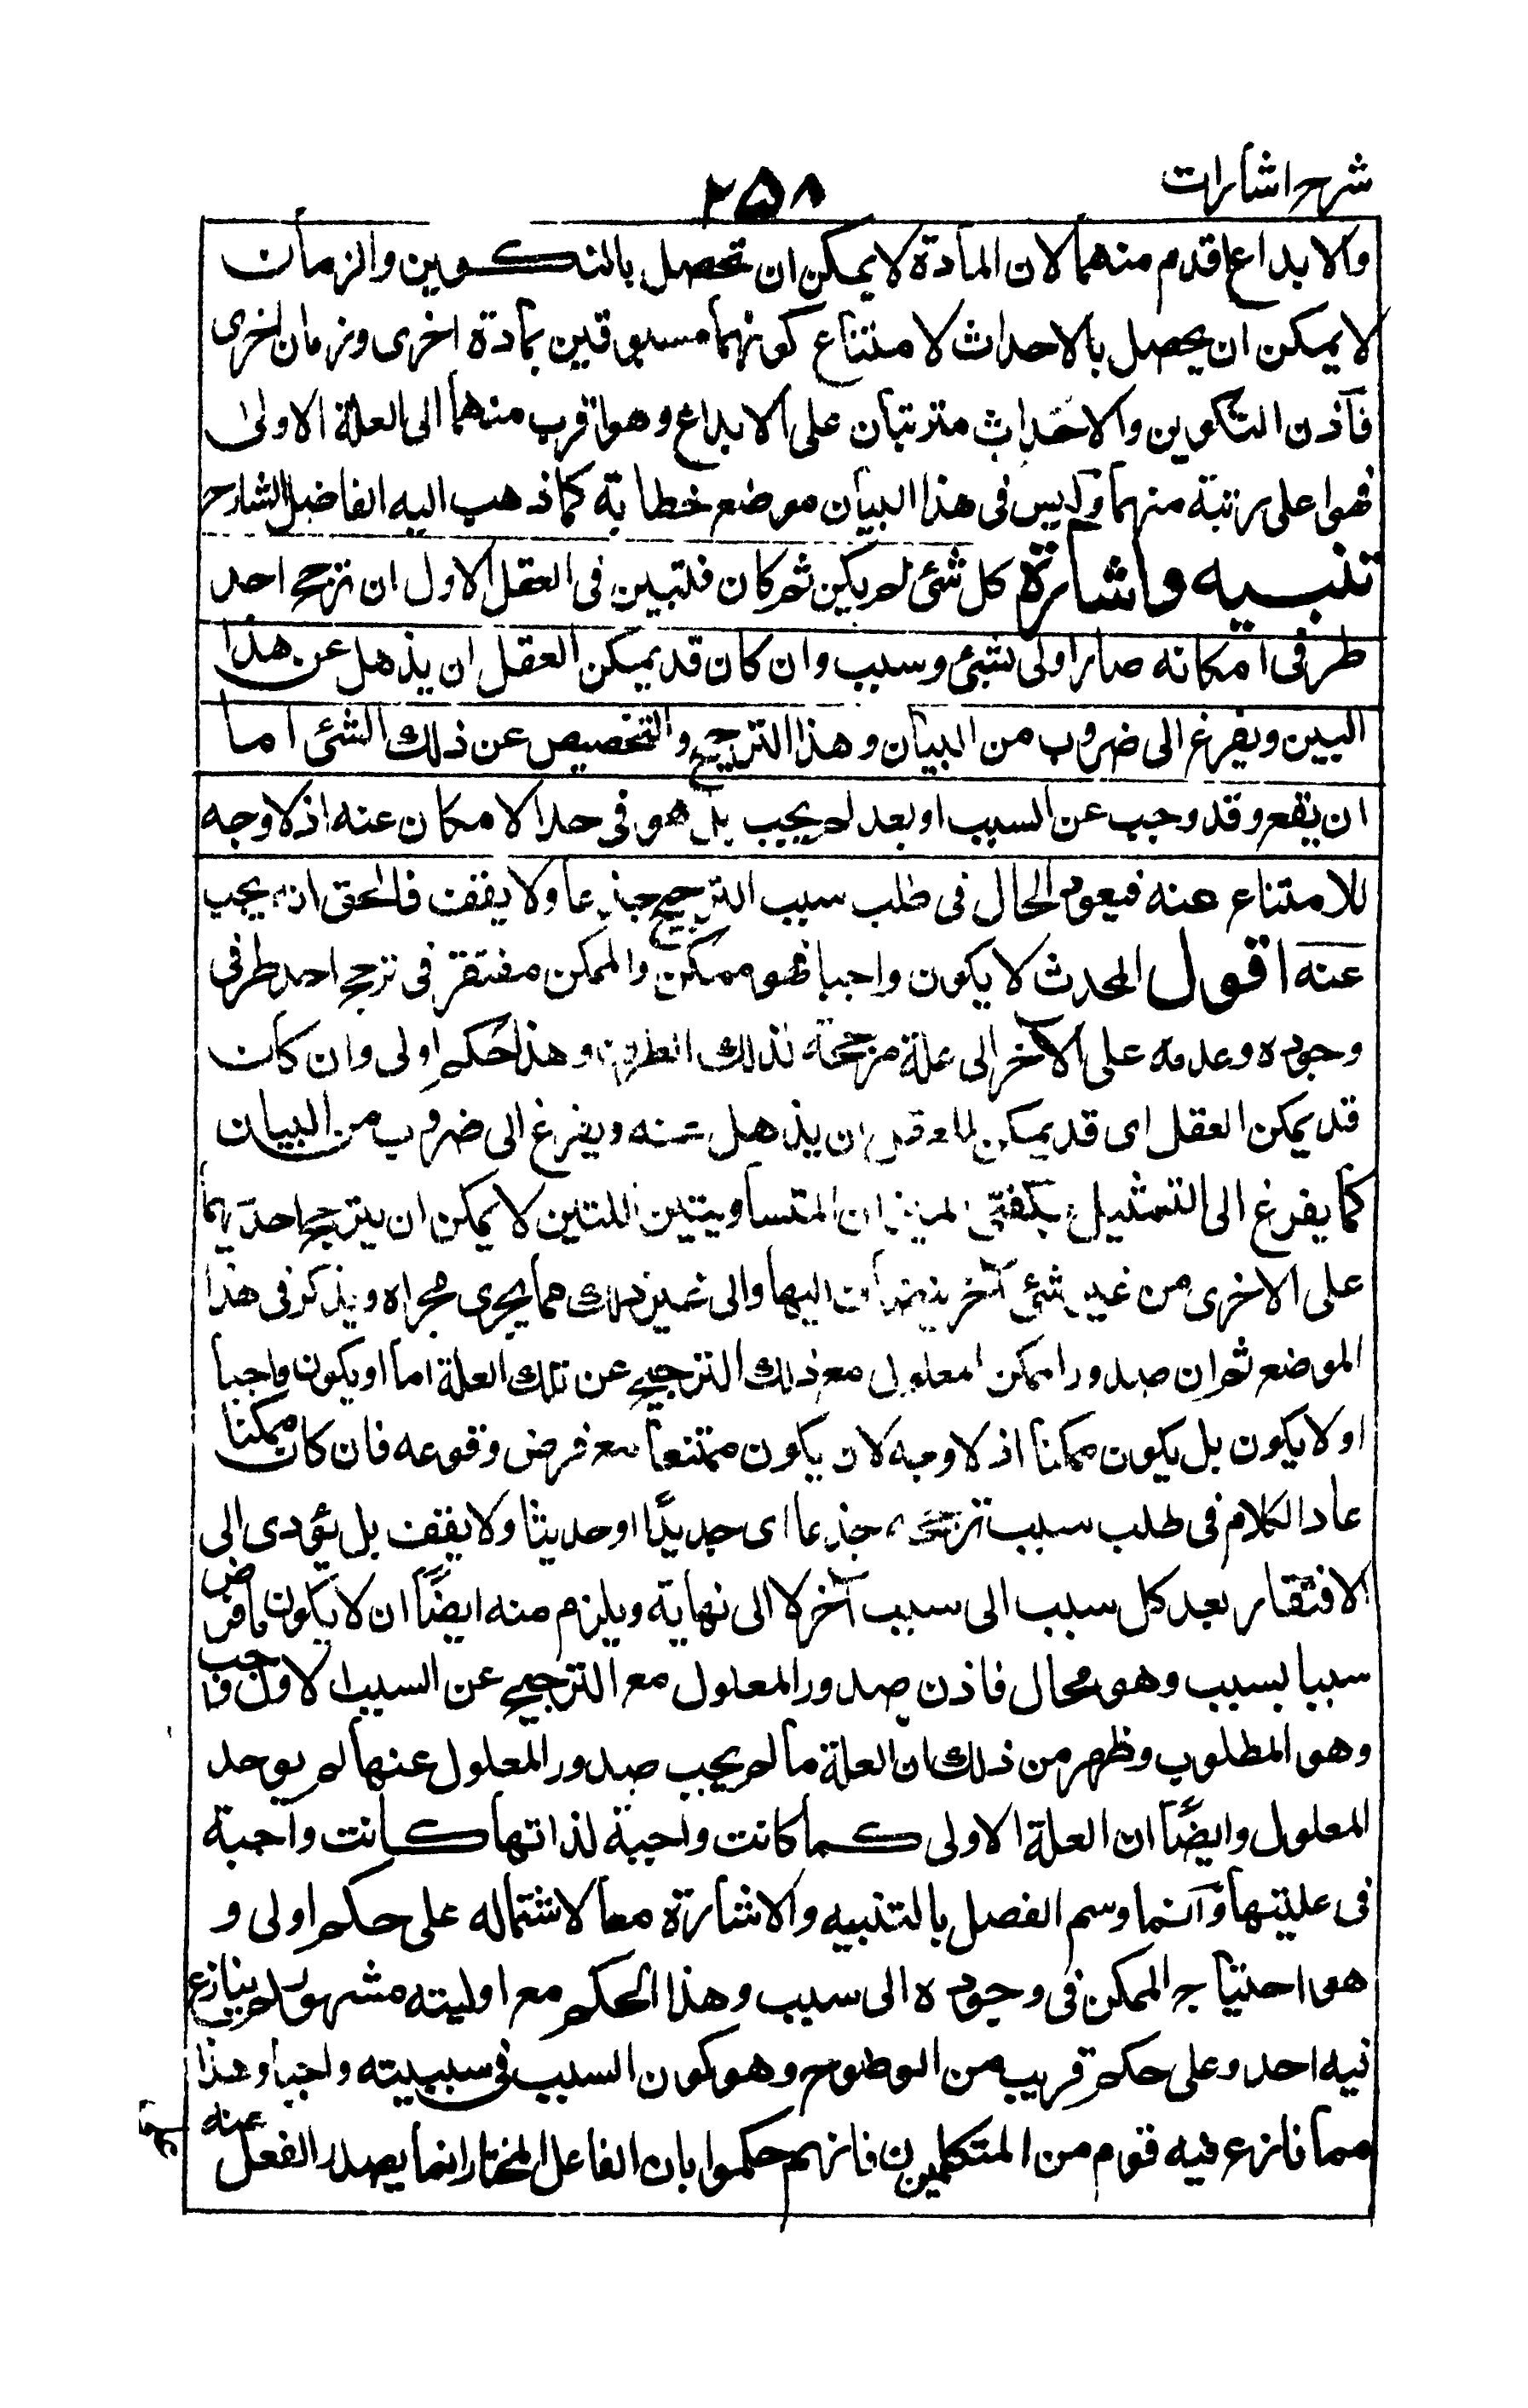 شرح اشارات
۲۵۸
والابداع اقدم منهما لان المادة لا يمكن ان تحصل بالتكوين والزمان
لا يمكن ان يحصل بالاحداث لامتناع كونهما مسبوقين بمادة اخرى وزمان اخرى
فاذن التكوين والاحداث مترتبان على الابداع وهو اقرب منهما الى العلة الاولى
فهو اعلى مرتبة منهما وليس فى هذا البيان موضع خطابة كما ذهب اليه الفاضل الشارح
تنبيه واشارة كل شئ لم يكن ثم كان فتبين فى العقل الاول ان ترجح احد
طرفى امكانه صار اولى بشئ وسبب وان كان قد يمكن العقل ان يذهل عن هذا
البين ويفرغ الى ضروب من البيان وهذا الترجيح والتخصيص عن ذلك الشئ اما
ان يقع وقد وجب عن السبب او بعد لم يجب بل هو فى حد الامكان عنه اذ لا وجه
للامتناع عنه فيعود الحال فى طلب سبب الترجيح جذعا ولا يقف فالحق انه يجب
عنه اقول المحدث لا يكون واجبا فهو ممكن والممكن مفتقر فى ترجح احد طرفى
وجوده وعدمه على الآخر الى علة مرجحة لذلك الطرف وهذا حكم اولى وان كان
قد يمكن العقل اى قد يمكن للعقل ان يذهل عنه ويفرغ الى ضروب من البيان
كما يفرغ الى التمثيل بكفتى الميزان المتساويتين اللتين لا يمكن ان يترجح احدىهما
على الاخرى من غير شئ آخر ينضاف اليها والى غير ذلك مما يجرى مجراه ويذكر فى هذا
الموضع ثم ان صدور الممكن المعلول مع ذلك الترجيح عن تلك العلة اما ان يكون واجبا
او لا يكون بل يكون ممكنا اذ لا وجه لان يكون ممتنعا مع فرض وقوعه فان كان ممكنا
عاد الكلام فى طلب سبب ترجحه جذعا اى جديدًا او حديثا ولا يقف بل يؤدى الى
الافتقار بعد كل سبب الى سبب آخر لا الى نهاية ويلزم منه ايضًا ان لا يكون ما فرض
سببا بسبب وهو محال فاذن صدور المعلول مع الترجيح عن السبب الاول واجب
وهو المطلوب وظهر من ذلك ان العلة ما لم يجب صدور المعلول عنها لم يوجد
المعلول وايضًا ان العلة الاولى كما كانت واجبة لذاتها كانت واجبة
فى عليتها وانما وسم الفصل بالتنبيه والاشارة معا لاشتماله على حكم اولى و
هو احتياج الممكن فى وجوده الى سبب وهذا الحكم مع اوليته مشهور لم ينازع
فيه احد وعلى حكم قريب من الوضوح وهو كون السبب فى سببيته واجبا وهذا
مما نازع فيه قوم من المتكلمين فانهم حكموا بان الفاعل المختار انما يصدر الفعل عنه